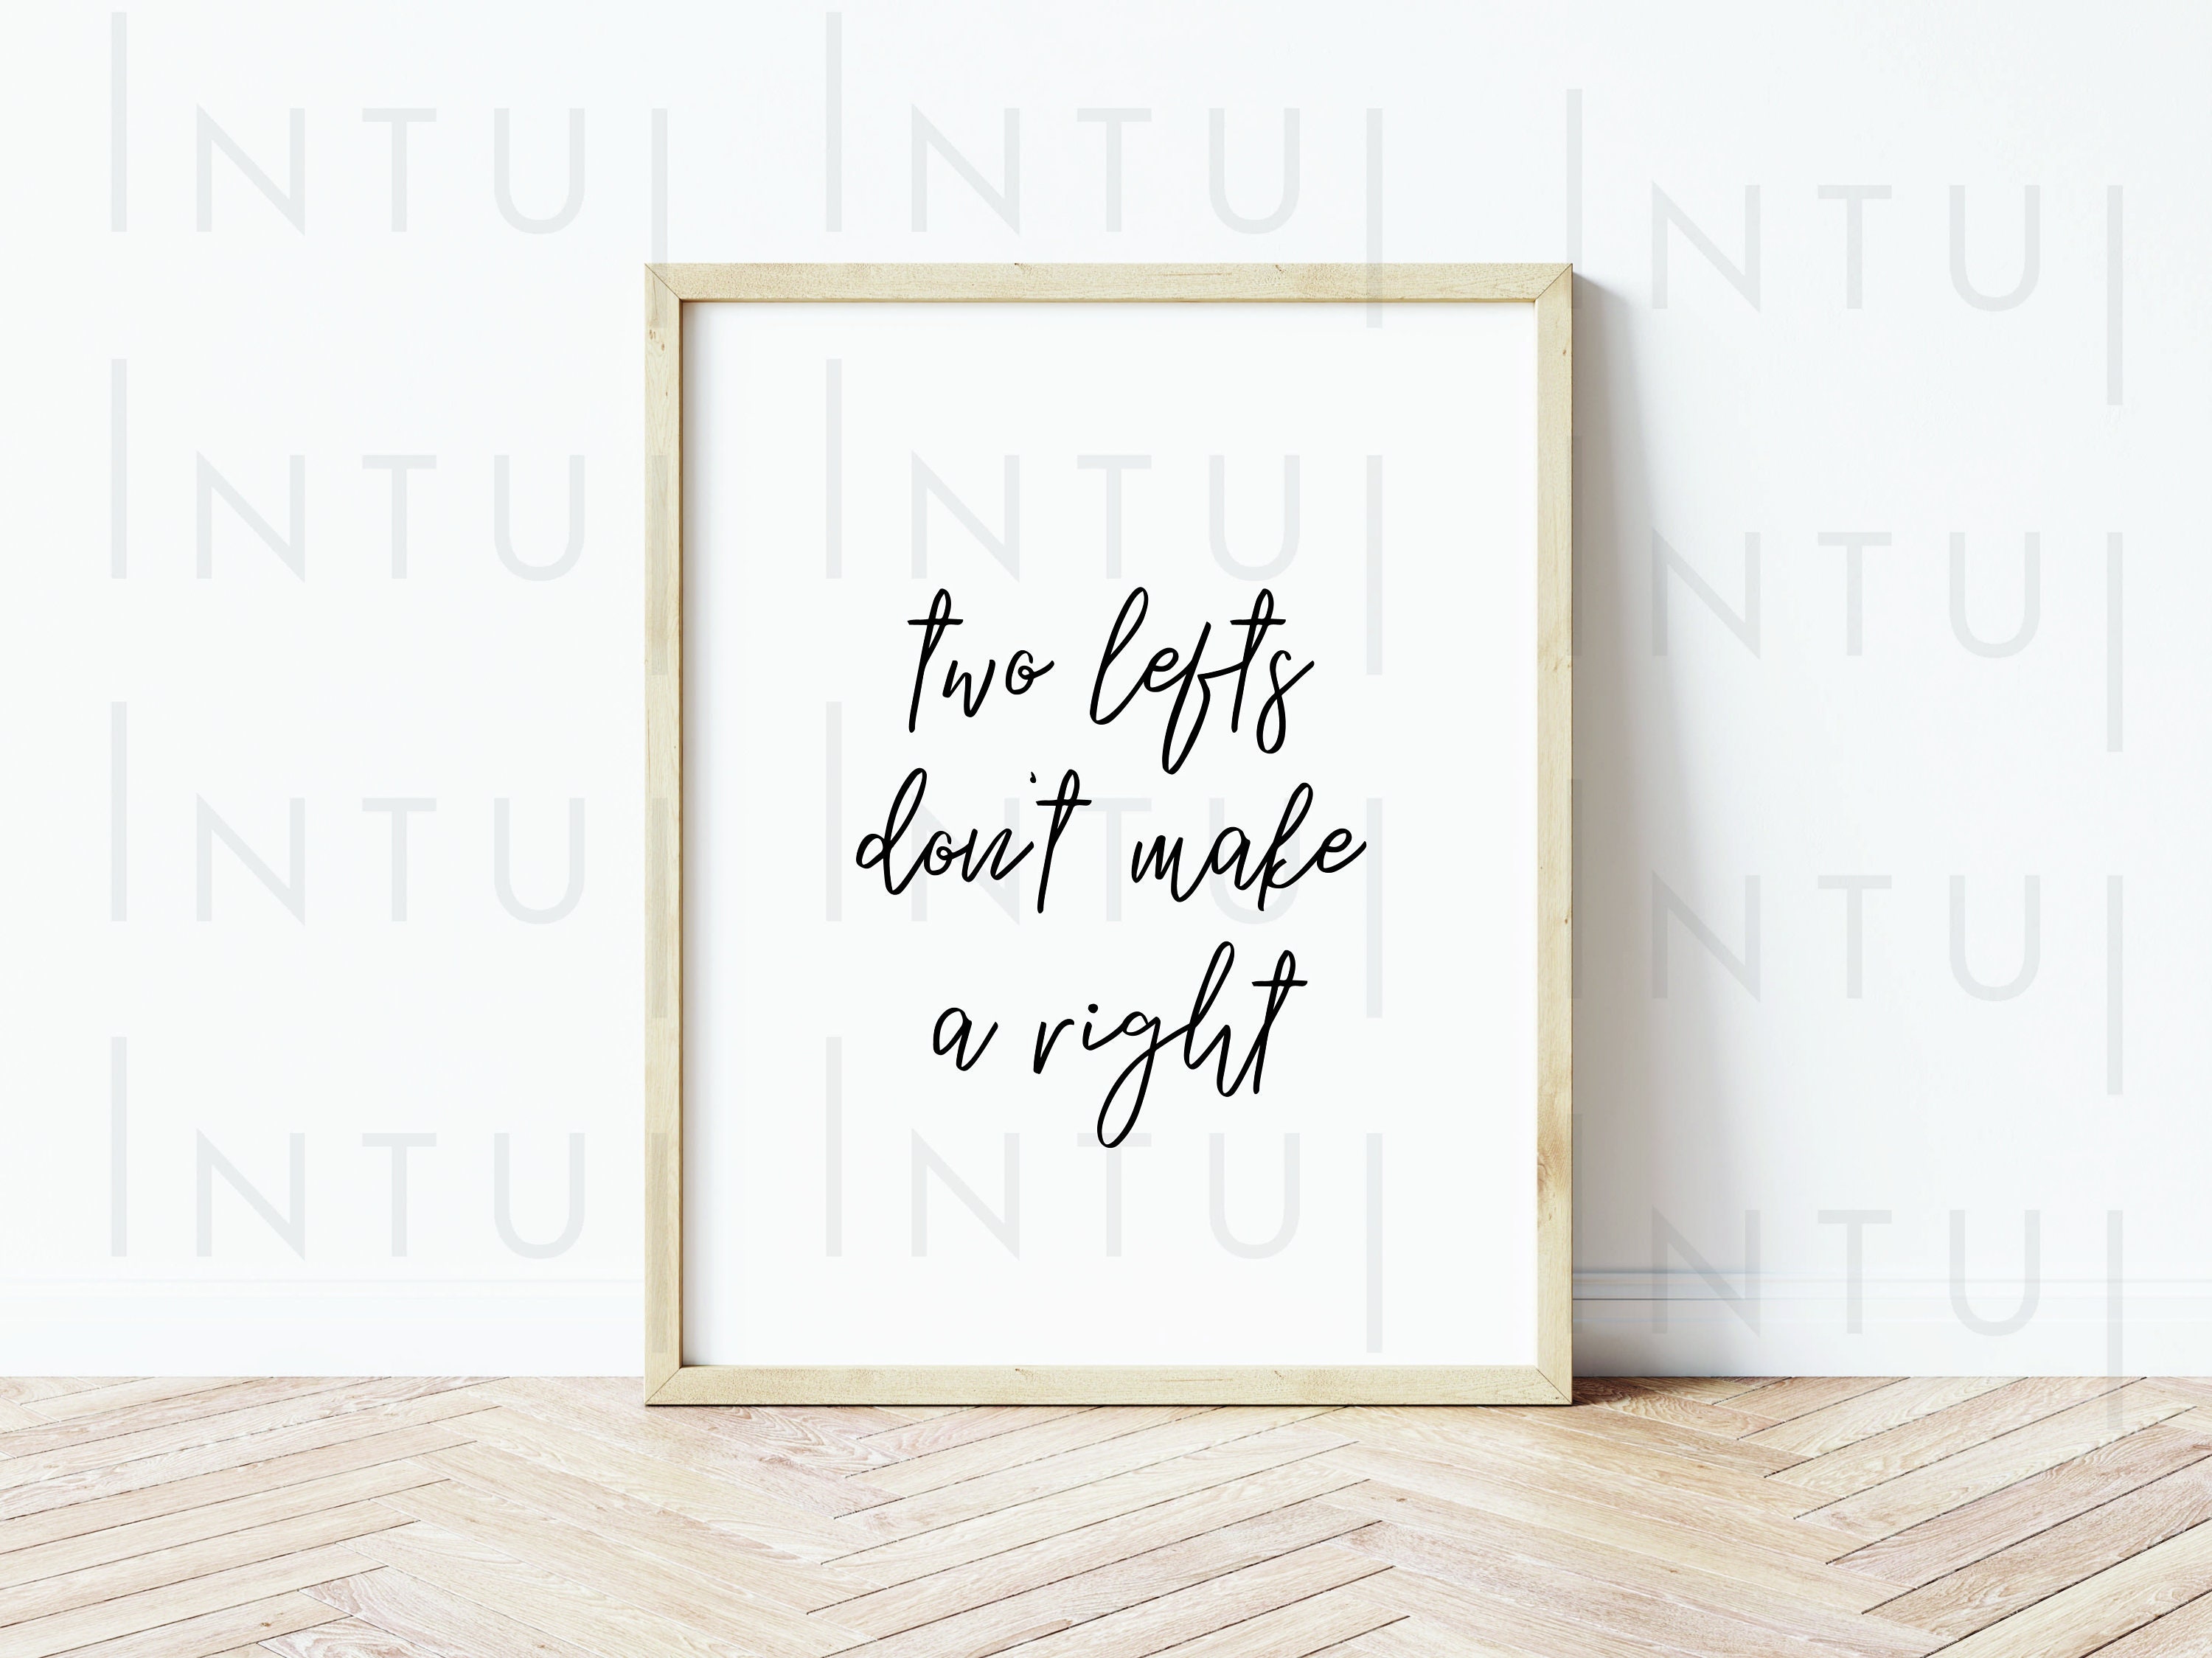 INTUI INTUI INTUI
INTUI INTUI INTUI
INTUI INTUI INTUI
INTUI INTUI INTUI
two lefts
don't make
a right